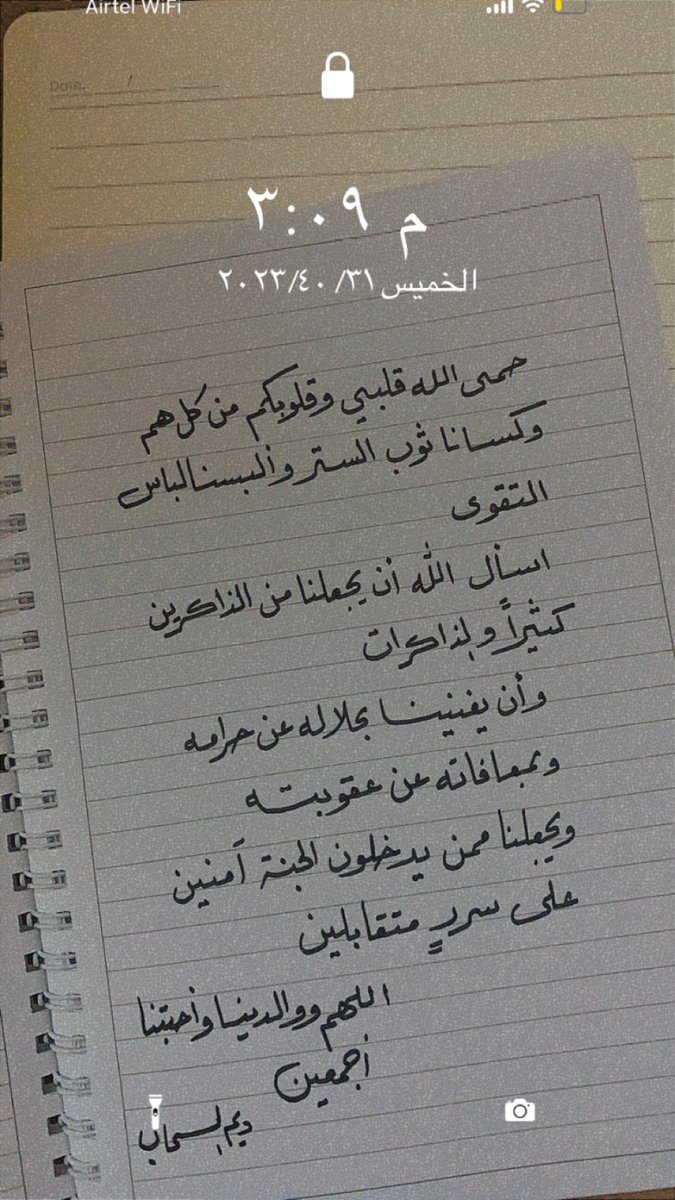 Airtel WiFi
Date. / /
٣:٠٩ م
الخميس ٢٠٢٣/٤٠/٣١
حمى الله قلبي وقلوبكم من كل هم
وكسانا ثوب الستر وألبسنا لباس
التقوى
اسأل الله أن يجعلنا من الذاكرين
كثيراً والذاكرات
وأن يغنينا بحلاله عن حرامه
وبمعافاته عن عقوبته
ويجعلنا ممن يدخلون الجنة آمنين
على سررٍ متقابلين
اللهم ووالدينا وأحبتنا
أجمعين
ديم السحاب